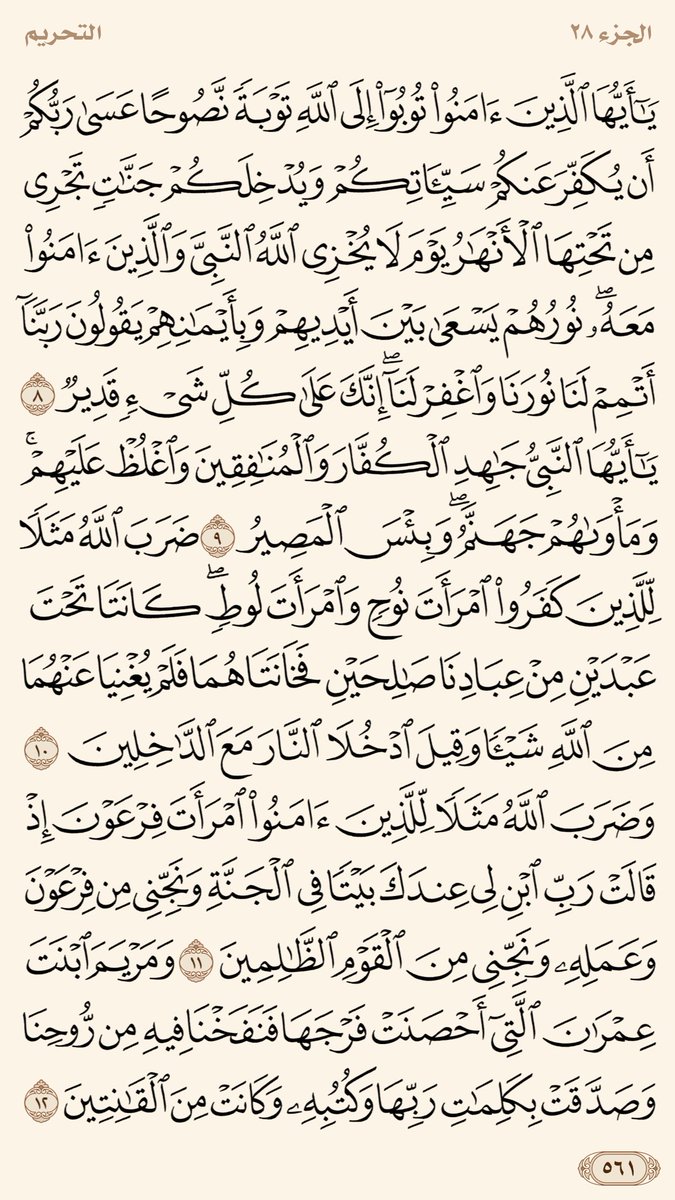 الجزء ٢٨
التحريم
يَٰٓأَيُّهَا ٱلَّذِينَ ءَامَنُوا۟ تُوبُوٓا۟ إِلَى ٱللَّهِ تَوْبَةً نَّصُوحًا عَسَىٰ رَبُّكُمْ
أَن يُكَفِّرَ عَنكُمْ سَيِّـَٔاتِكُمْ وَيُدْخِلَكُمْ جَنَّٰتٍ تَجْرِى
مِن تَحْتِهَا ٱلْأَنْهَٰرُ يَوْمَ لَا يُخْزِى ٱللَّهُ ٱلنَّبِىَّ وَٱلَّذِينَ ءَامَنُوا۟
مَعَهُۥ ۖ نُورُهُمْ يَسْعَىٰ بَيْنَ أَيْدِيهِمْ وَبِأَيْمَٰنِهِمْ يَقُولُونَ رَبَّنَآ
أَتْمِمْ لَنَا نُورَنَا وَٱغْفِرْ لَنَآ ۖ إِنَّكَ عَلَىٰ كُلِّ شَىْءٍ قَدِيرٌ ٨
يَٰٓأَيُّهَا ٱلنَّبِىُّ جَٰهِدِ ٱلْكُفَّارَ وَٱلْمُنَٰفِقِينَ وَٱغْلُظْ عَلَيْهِمْ ۚ
وَمَأْوَىٰهُمْ جَهَنَّمُ ۖ وَبِئْسَ ٱلْمَصِيرُ ٩ ضَرَبَ ٱللَّهُ مَثَلًا
لِّلَّذِينَ كَفَرُوا۟ ٱمْرَأَتَ نُوحٍ وَٱمْرَأَتَ لُوطٍ ۖ كَانَتَا تَحْتَ
عَبْدَيْنِ مِنْ عِبَادِنَا صَٰلِحَيْنِ فَخَانَتَاهُمَا فَلَمْ يُغْنِيَا عَنْهُمَا
مِنَ ٱللَّهِ شَيْـًٔا وَقِيلَ ٱدْخُلَا ٱلنَّارَ مَعَ ٱلدَّٰخِلِينَ ١٠
وَضَرَبَ ٱللَّهُ مَثَلًا لِّلَّذِينَ ءَامَنُوا۟ ٱمْرَأَتَ فِرْعَوْنَ إِذْ
قَالَتْ رَبِّ ٱبْنِ لِى عِندَكَ بَيْتًا فِى ٱلْجَنَّةِ وَنَجِّنِى مِن فِرْعَوْنَ
وَعَمَلِهِۦ وَنَجِّنِى مِنَ ٱلْقَوْمِ ٱلظَّٰلِمِينَ ١١ وَمَرْيَمَ ٱبْنَتَ
عِمْرَٰنَ ٱلَّتِىٓ أَحْصَنَتْ فَرْجَهَا فَنَفَخْنَا فِيهِ مِن رُّوحِنَا
وَصَدَّقَتْ بِكَلِمَٰتِ رَبِّهَا وَكُتُبِهِۦ وَكَانَتْ مِنَ ٱلْقَٰنِتِينَ ١٢
٥٦١